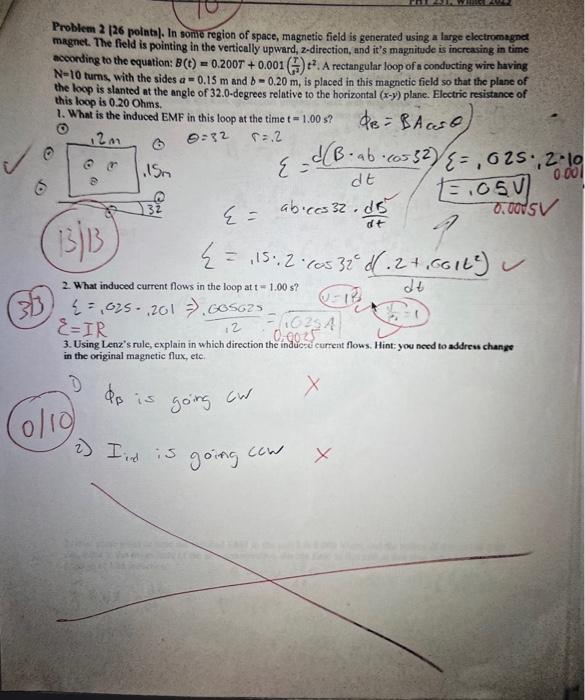 10
PHY 251, Winter 2023
Problem 2 [26 points]. In some region of space, magnetic field is generated using a large electromagnet
magnet. The field is pointing in the vertically upward, z-direction, and it's magnitude is increasing in time
according to the equation: B(t) = 0.200T + 0.001 (T/s²) t². A rectangular loop of a conducting wire having
N=10 turns, with the sides a = 0.15 m and b = 0.20 m, is placed in this magnetic field so that the plane of
the loop is slanted at the angle of 32.0-degrees relative to the horizontal (x-y) plane. Electric resistance of
this loop is 0.20 Ohms.
1. What is the induced EMF in this loop at the time t = 1.00 s?
ΦB = BAcosθ
.2m θ=32 r=.2
.15m
32
ε = d(B·ab·cos32)/dt
ε = .025·.2·10
0.001
= .05V
0.0005V
ε = ab·cos32·dB/dt
13/13
ε = .15·.2·cos32° d(.2+.001t²)/dt
2. What induced current flows in the loop at t = 1.00 s?
3/3
ε = .025·.201 ⇒ .005025/.2 = .025A
0.0025
ε=IR
3. Using Lenz's rule, explain in which direction the induced current flows. Hint: you need to address change
in the original magnetic flux, etc.
1) ΦB is going CW X
0/10
2) Iind is going CCW X